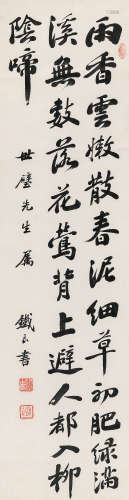 雨香雲嫩散春泥細草初肥綠滿
溪無数落花鶯背上避人都入柳
陰啼
世璧先生屬
鐵良書